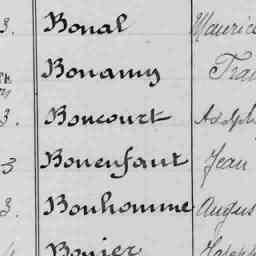 3. Bonal Maurice
Bonamy
3. Boncourt Adolph
3 Bonenfant Jean
3. Bonhomme Augus
Bonier Joseph